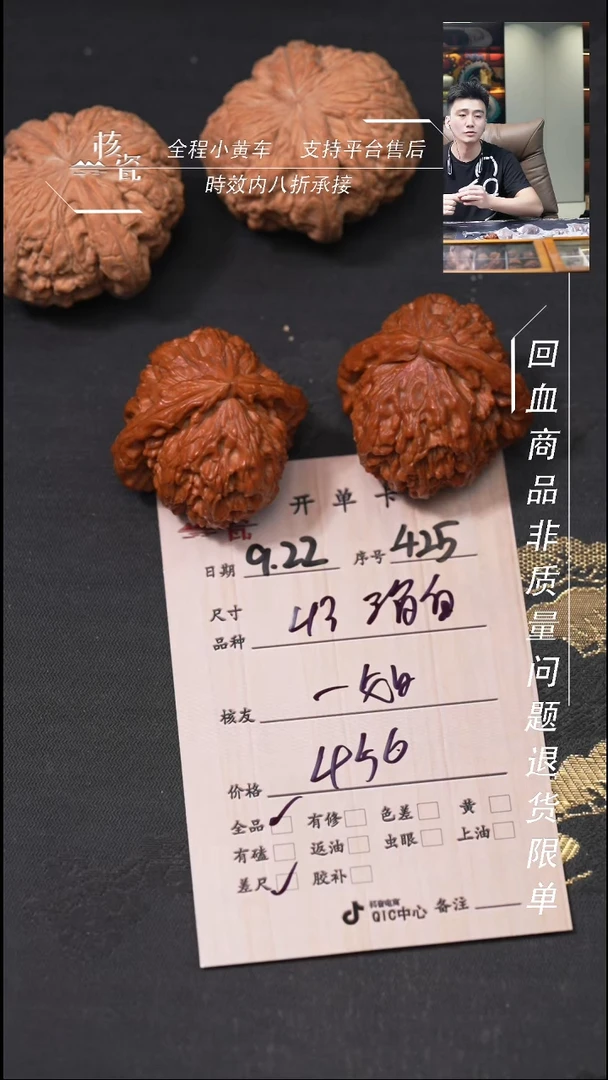 核瓷
全程小黄车 支持平台售后
時效内八折承接
回血商品非质量问题退货限单
开单卡
日期 9.22 序号 425
尺寸
品种 43
核友 一
价格 456
全品 有修 色差 黄
有磕 返油 虫眼 上油
差尺 胶补
抖音电商
QIC中心 备注